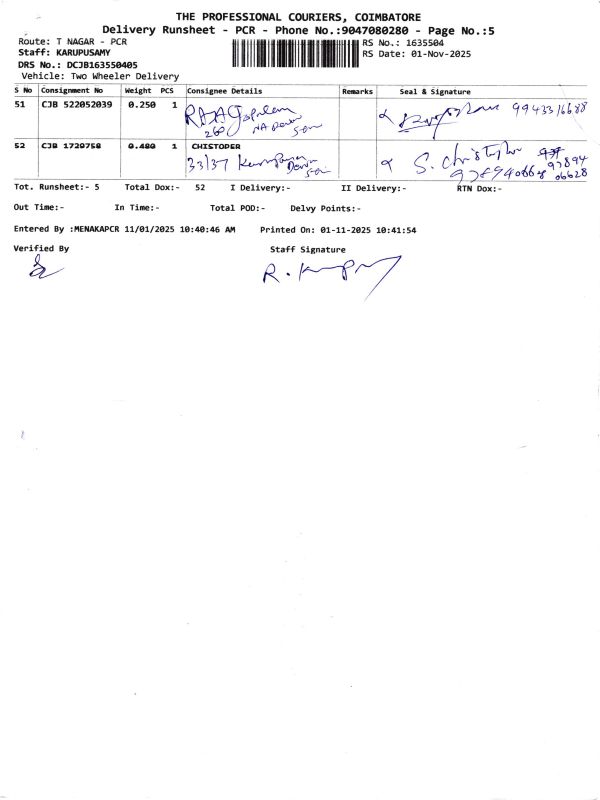 THE PROFESSIONAL COURIERS, COIMBATORE
Delivery Runsheet - PCR - Phone No.:9047080280 - Page No.:5
Route: T NAGAR - PCR
RS No.: 1635504
Staff: KARUPUSAMY
RS Date: 01-Nov-2025
DRS No.: DCJB163550405
Vehicle: Two Wheeler Delivery
S No Consignment No Weight PCS Consignee Details Remarks Seal & Signature
51 CJB 522052039 0.250 1 9943316688
260
52 CJB 1729758 0.480 1 CHISTOPER
33/37 S. Christopher
97894
9789406628 06628
Tot. Runsheet:- 5 Total Dox:- 52 I Delivery:- II Delivery:- RTN Dox:-
Out Time:- In Time:- Total POD:- Delvy Points:-
Entered By :MENAKAPCR 11/01/2025 10:40:46 AM Printed On: 01-11-2025 10:41:54
Verified By Staff Signature